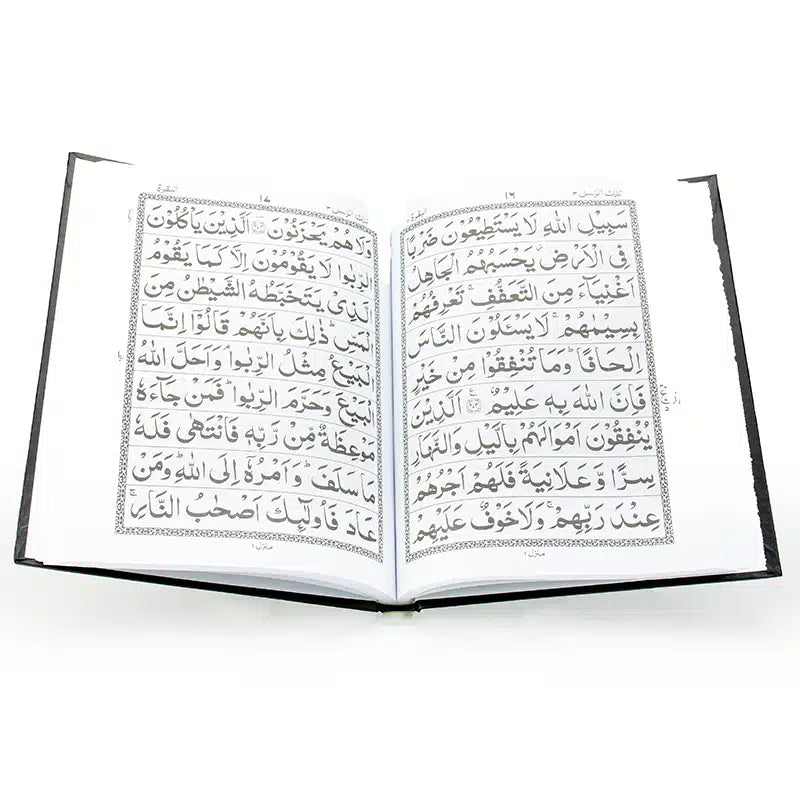 تلك الرسل ٣ ١٦ البقرة ٢
سَبِيْلِ اللّٰهِ لَا يَسْتَطِيْعُوْنَ ضَرْبًا
فِى الْاَرْضِ ز يَحْسَبُهُمُ الْجَاهِلُ
اَغْنِيَآءَ مِنَ التَّعَفُّفِ ۚ تَعْرِفُهُمْ
بِسِيْمٰهُمْ ۚ لَا يَسْـَٔلُوْنَ النَّاسَ
اِلْحَافًا ؕ وَمَا تُنْفِقُوْا مِنْ خَيْرٍ
فَاِنَّ اللّٰهَ بِهٖ عَلِيْمٌ ۧ اَلَّذِيْنَ
يُنْفِقُوْنَ اَمْوَالَهُمْ بِالَّيْلِ وَالنَّهَارِ
سِرًّا وَّ عَلَانِيَةً فَلَهُمْ اَجْرُهُمْ
عِنْدَ رَبِّهِمْ ۚ وَلَا خَوْفٌ عَلَيْهِمْ
منزل ١
تلك الرسل ٣ ١٧ البقرة ٢
وَلَا هُمْ يَحْزَنُوْنَ اَلَّذِيْنَ يَاْكُلُوْنَ
الرِّبٰوا لَا يَقُوْمُوْنَ اِلَّا كَمَا يَقُوْمُ
الَّذِىْ يَتَخَبَّطُهُ الشَّيْطٰنُ مِنَ
الْمَسِّ ؕ ذٰلِكَ بِاَنَّهُمْ قَالُوْۤا اِنَّمَا
الْبَيْعُ مِثْلُ الرِّبٰوا ۘ وَاَحَلَّ اللّٰهُ
الْبَيْعَ وَحَرَّمَ الرِّبٰوا ؕ فَمَنْ جَآءَهٗ
مَوْعِظَةٌ مِّنْ رَّبِّهٖ فَانْتَهٰى فَلَهٗ
مَا سَلَفَ ؕ وَاَمْرُهٗۤ اِلَى اللّٰهِ ؕ وَمَنْ
عَادَ فَاُولٰٓئِكَ اَصْحٰبُ النَّارِ ۚ
منزل ١